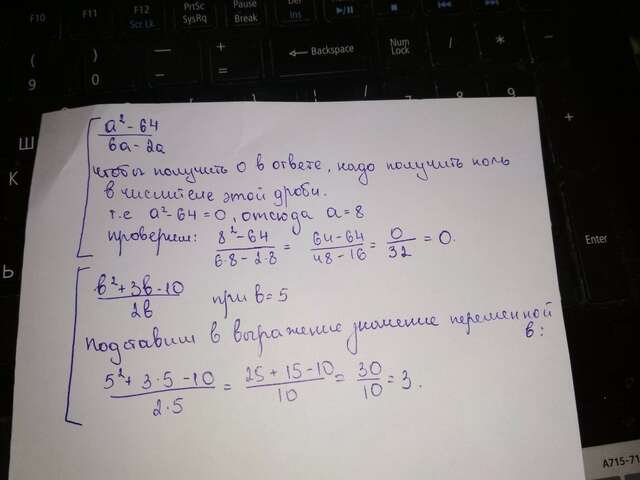 F10
F11
F12
Scr Lk
PrtSc
SysRq
Pause
Break
Del
Ins
(
9
)
0
—
-
+
=
Backspace
Num
Lock
/
*
-
8
9
+
Ш
К
Ь
Enter
A715-71
a² - 64
6a - 2a
чтобы получить 0 в ответе, надо получить ноль
в числителе этой дроби.
т.е a² - 64 = 0, отсюда a = 8
проверим: 8² - 64 / 6·8 - 2·8 = 64 - 64 / 48 - 16 = 0 / 32 = 0.
b² + 3b - 10 / 2b при b = 5
Подставим в выражение значение переменной
b:
5² + 3·5 - 10 / 2·5 = 25 + 15 - 10 / 10 = 30 / 10 = 3.